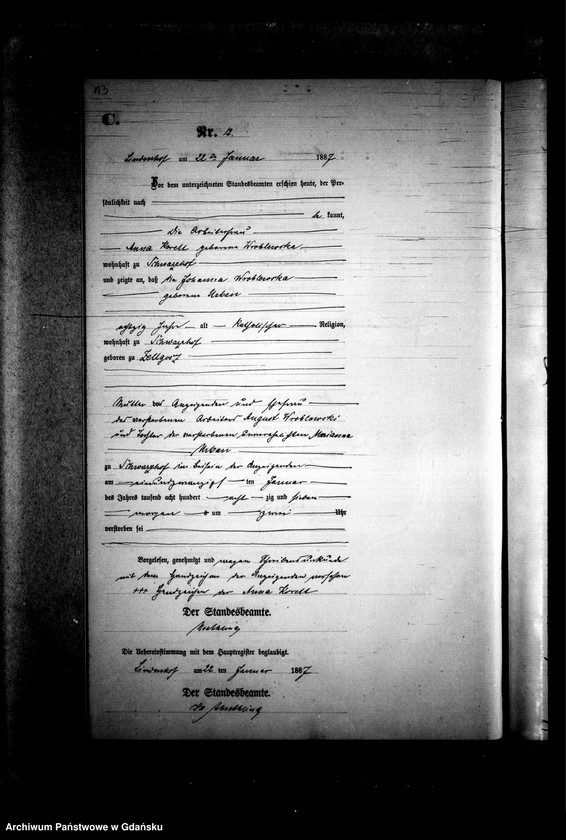 113
C.
Nr. 12.
Lindenhof am 22ten Januar 1887
Vor dem unterzeichneten Standesbeamten erschien heute, der Per-
sönlichkeit nach
kannt,
Die Arbeiterfrau
Anna Krell geborene Wroblewska
wohnhaft zu Schwarzhof
und zeigte an, daß die Johanna Wroblewska
geborene Urban
achtzig Jahre alt Katholischer Religion,
wohnhaft zu Schwarzhof
geboren zu Zellgosz
Mutter der Anzeigenden und Ehefrau
des verstorbenen Arbeiters August Wroblewski
und Tochter der verstorbenen unverehelichten Marianna
Urban
zu Schwarzhof im Beisein der Anzeigenden
am einundzwanzigsten Januar
des Jahres tausend acht hundert acht zig und sieben
morgens um zwei Uhr
verstorben sei
Vorgelesen, genehmigt und wegen Schreibensunkunde
mit dem Handzeichen der Anzeigenden versehen
+++ Handzeichen der Anna Krell
Der Standesbeamte.
Die Uebereinstimmung mit dem Hauptregister beglaubigt.
Lindenhof am 22 ten Januar 1887
Der Standesbeamte.
Archiwum Państwowe w Gdańsku